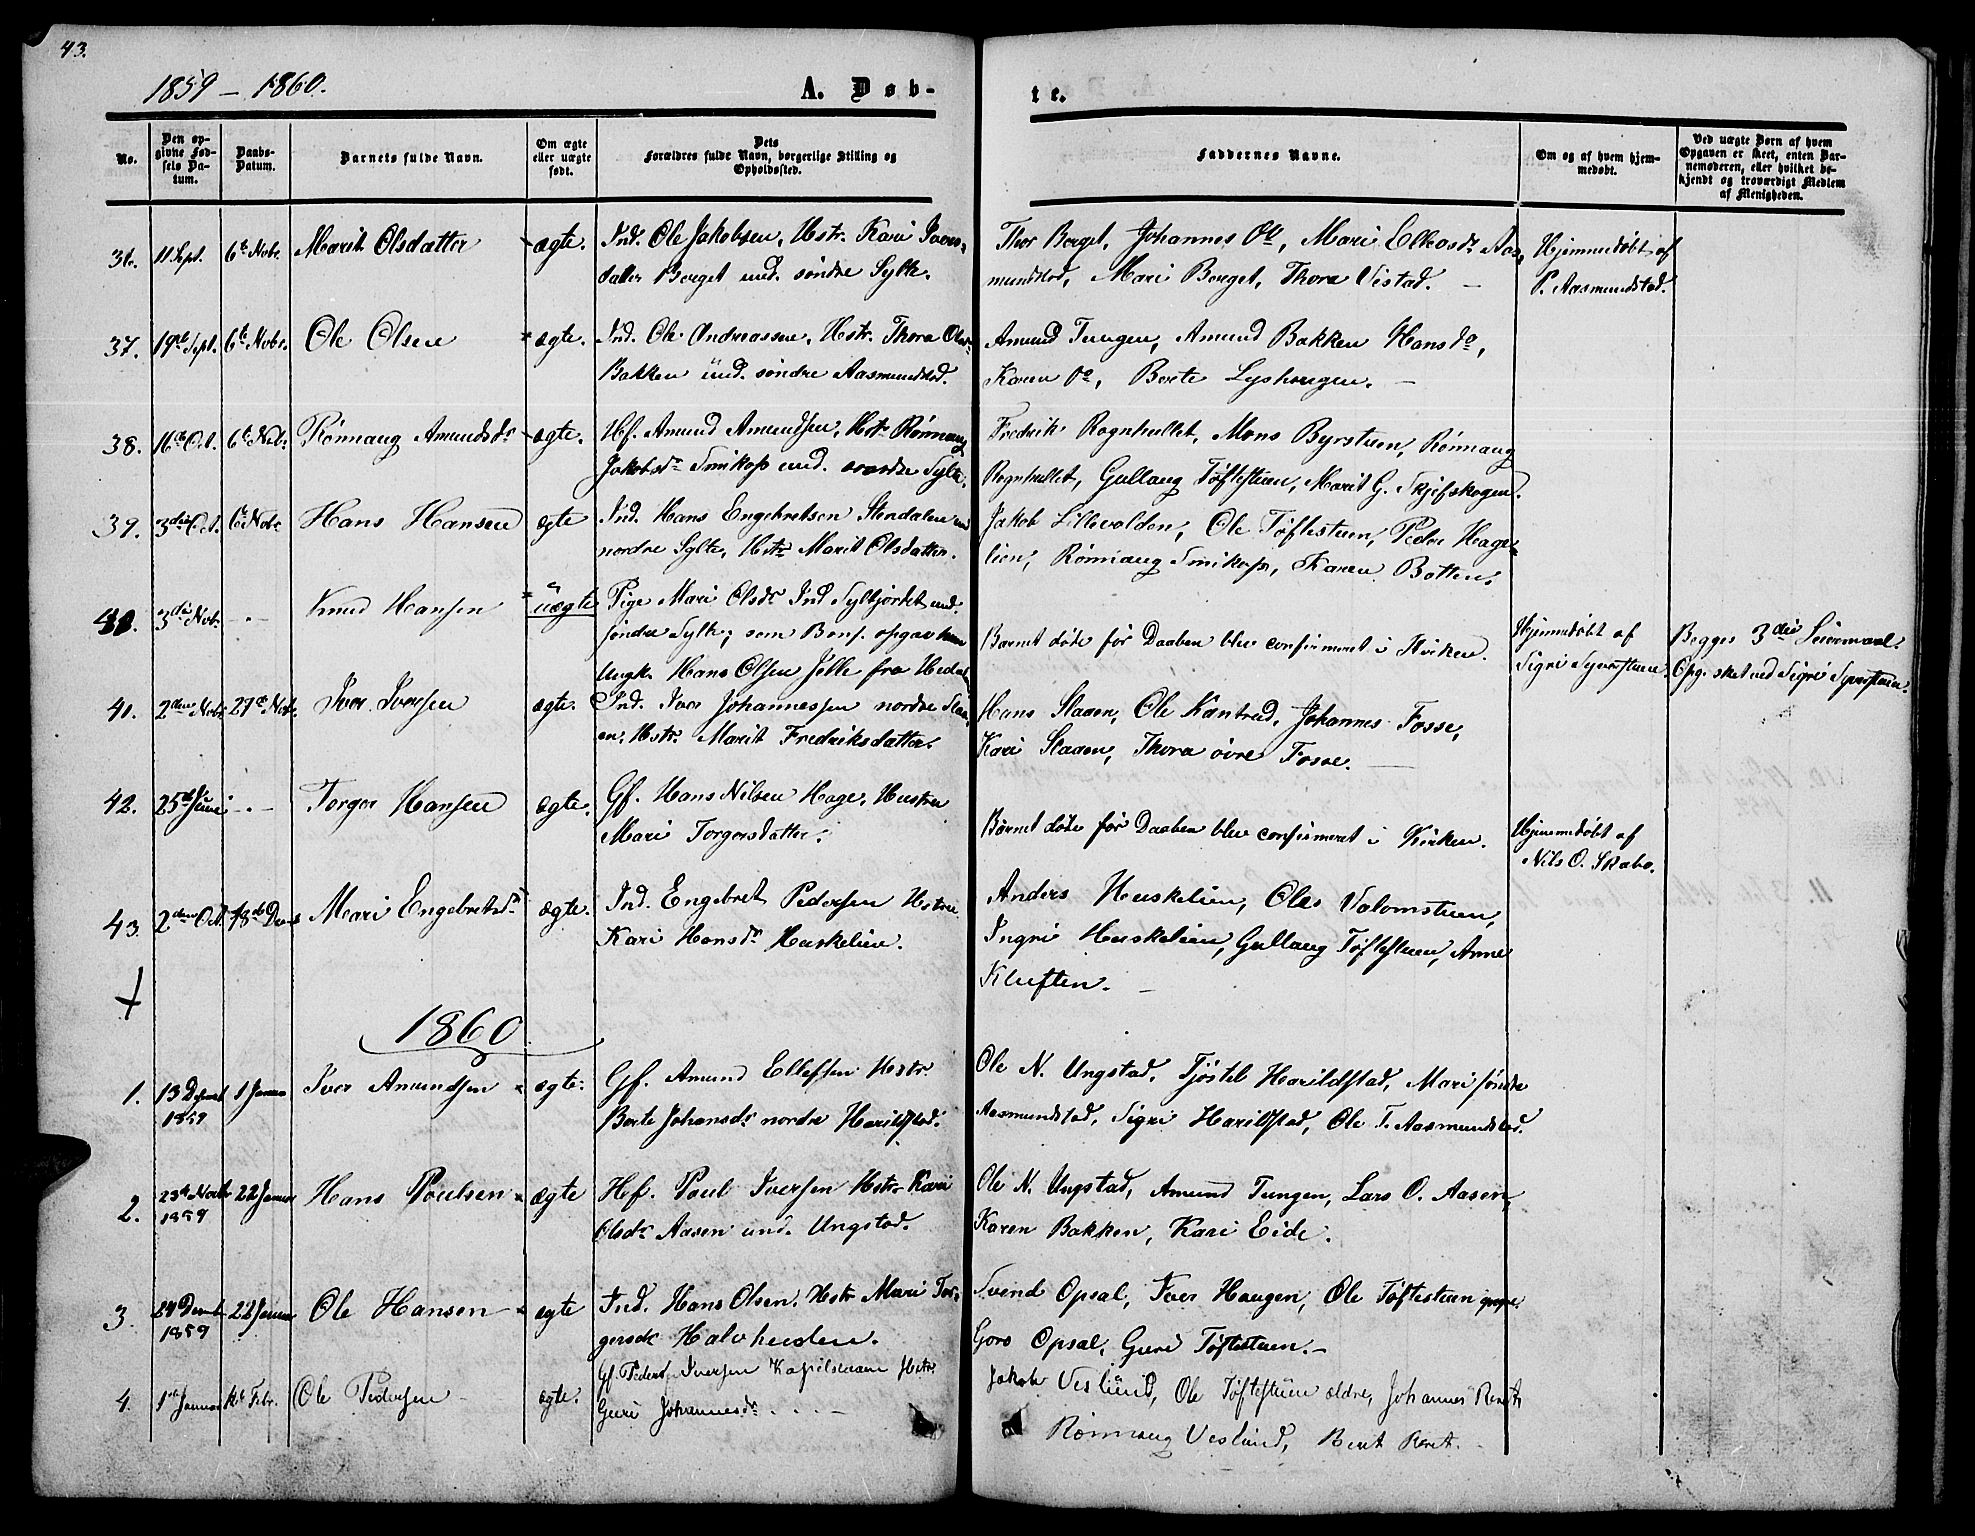 43.
1859 – 1860.
A. Døb-
te.
No.
Den op-
givne Fød-
sels Da-
tum.
Daabs-
Datum.
Barnets fulde Navn.
Om ægte
eller uægte
født.
Dets
Forældres fulde Navn, borgerlige Stilling og
Opholdssted.
Faddernes Navne.
Om og af hvem hjem-
medøbt.
Ved uægte Børn af hvem
Opgaven er skeet, enten Bar-
nemoderen, eller hvilket be-
kjendt og troværdigt Medlem
af Menigheden.
36. 11 Sept. 6te Nobr. Marit Olsdatter ægte. Ind. Ole Jakobsen, Hstr. Kari Ivers-
datter Berget und. søndre Sylte.
Thor Berget, Johannes do, Mari Ellevsdr Aas-
mundstad, Mari Berget, Thora Vistad. –
Hjemmedøbt af
P. Aasmundstad.
37. 19de Sept. 6te Nobr. Ole Olsen ægte. Ind. Ole Andreassen, Hstr. Thora Olsdr
Bakken und. søndre Aasmundstad.
Amund Tungen, Amund Bakken Hans do,
Karen do, Berte Lyshaugen. –
38. 16de Oct. 6te Nobr. Rønnaug Amundsdr ægte. Hf. Amund Amundsen, Hstr. Rønnaug
Jakobsdr Smikop und. nordre Sylte.
Fredrik Rognhullet, Mons Byrstuen, Rønnaug
Rognhullet, Gullaug Tøftestuen, Marit G. Skjefskogen.
39. 3die Oct. 6te Nobr Hans Hansen ægte Ind. Hans Engebretsen Stendalen und
nordre Sylte, Hstr. Marit Olsdatter.
Jakob Lillevolden, Ole Tøftestuen, Peder Hage-
lien, Rønnaug Smikop, Karen Botten.
40. 3die Nobr. – . – Knud Hansen uægte Pige Mari Olsdr Ind Syltjordet und.
søndre Sylte; som Bonf. opgav hun
Ungk. Hans Olsen Jelle fra Hedalen
Barnet døde før Daaben blev confirmeret i Kirken.
Hjemmedøbt af
Sigri Syverstuen.
Begges 3die Leiermaal.
Opg. sket ved Sigri Syverstuen.
41. 2den Nobr. 27de Nobr. Iver Iversen ægte. Ind. Iver Johannessen nordre Slaa-
en, Hstr. Marit Fredriksdatter.
Hans Slaaen, Ole Kantrud, Johannes Fosse,
Kari Slaaen, Thora øvre Fosse. –
42. 25de Juni – . – Torger Hansen ægte. Gf. Hans Nilsen Hage, Hustru
Mari Torgersdatter.
Barnet døde før Daaben blev confirmeret i Kirken.
Hjemmedøbt af
Nils O. Skabo.
43. 2den Oct. 18de Decbr Mari Engebretsdr ægte. Ind. Engebret Pedersen Hstru
Kari Hansdr Huskelien.
Anders Huskelien, Ole Volomstuen,
Ingri Huskelien, Gullaug Tøftestuen, Anne
Kluften. –
1860.
1. 13 Decembr
1859 1 Januar Iver Amundsen ægte. Gf. Amund Ellefsen Hstr.
Berte Johansdr nordre Harildstad.
Ole N. Ungstad, Tjøstel Harildstad, Mari søndre
Aasmundstad, Sigri Harildstad, Ole T. Aasmundstad.
2. 23de Novbr
1859 22 Januar Hans Poulsen ægte Hf. Poul Iversen Hstr. Kari
Olsdr Aasen und. Ungstad.
Ole N. Ungstad, Amund Tungen, Lars O. Aasen,
Karen Bakken, Kari Eide.
3. 24 Decmbr
1859 22 Januar Ole Hansen ægte Ind. Hans Olsen, Hstr Mari Tor-
gersdr Halvhusløen.
Svend Opsal, Iver Haugen, Ole Tøftestuen yngre,
Goro Opsal, Guri Tøftestuen. –
4. 1ste Januar Febr. Ole Pedersen – ægte. Gf. Peder Iversen Hstr.
Guri Johannesdr . . . –
Jakob Veslund, Ole Tøftestuen ældre, Johannes Beret
Rønnaug Veslund, Berit Beret. –